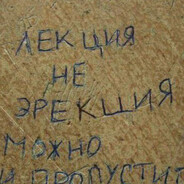 ЛЕКЦИЯ
НЕ
ЭРЕКЦИЯ
МОЖНО
И ПРОПУСТИТ